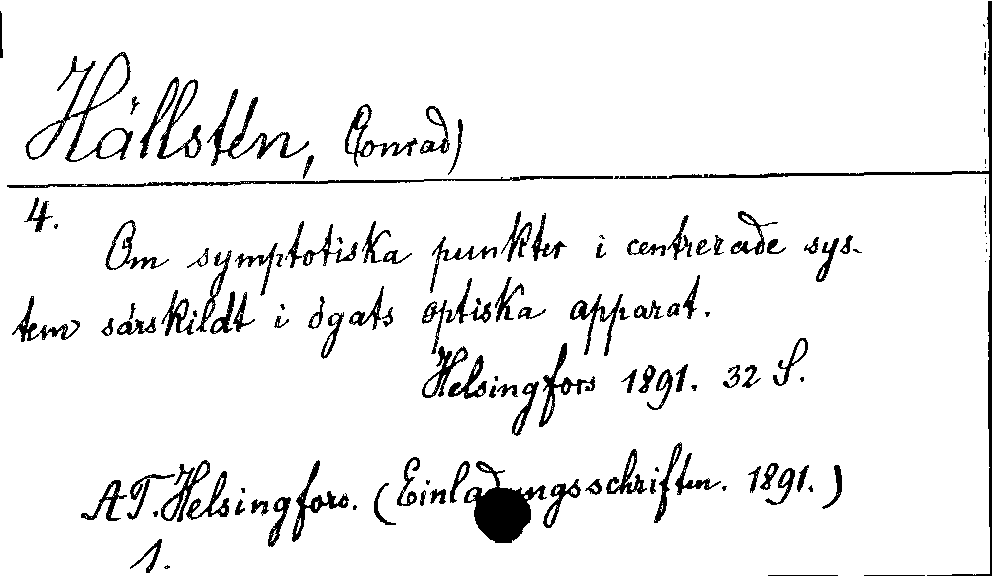 Hällstén, Conrad)
4.
Om symptotiska punkter i centrerade sys-
tem särskildt i ögats optiska apparat.
Helsingfors 1891. 32 S.
AT. Helsingfors. (Einladungsschriften. 1891.)
1.